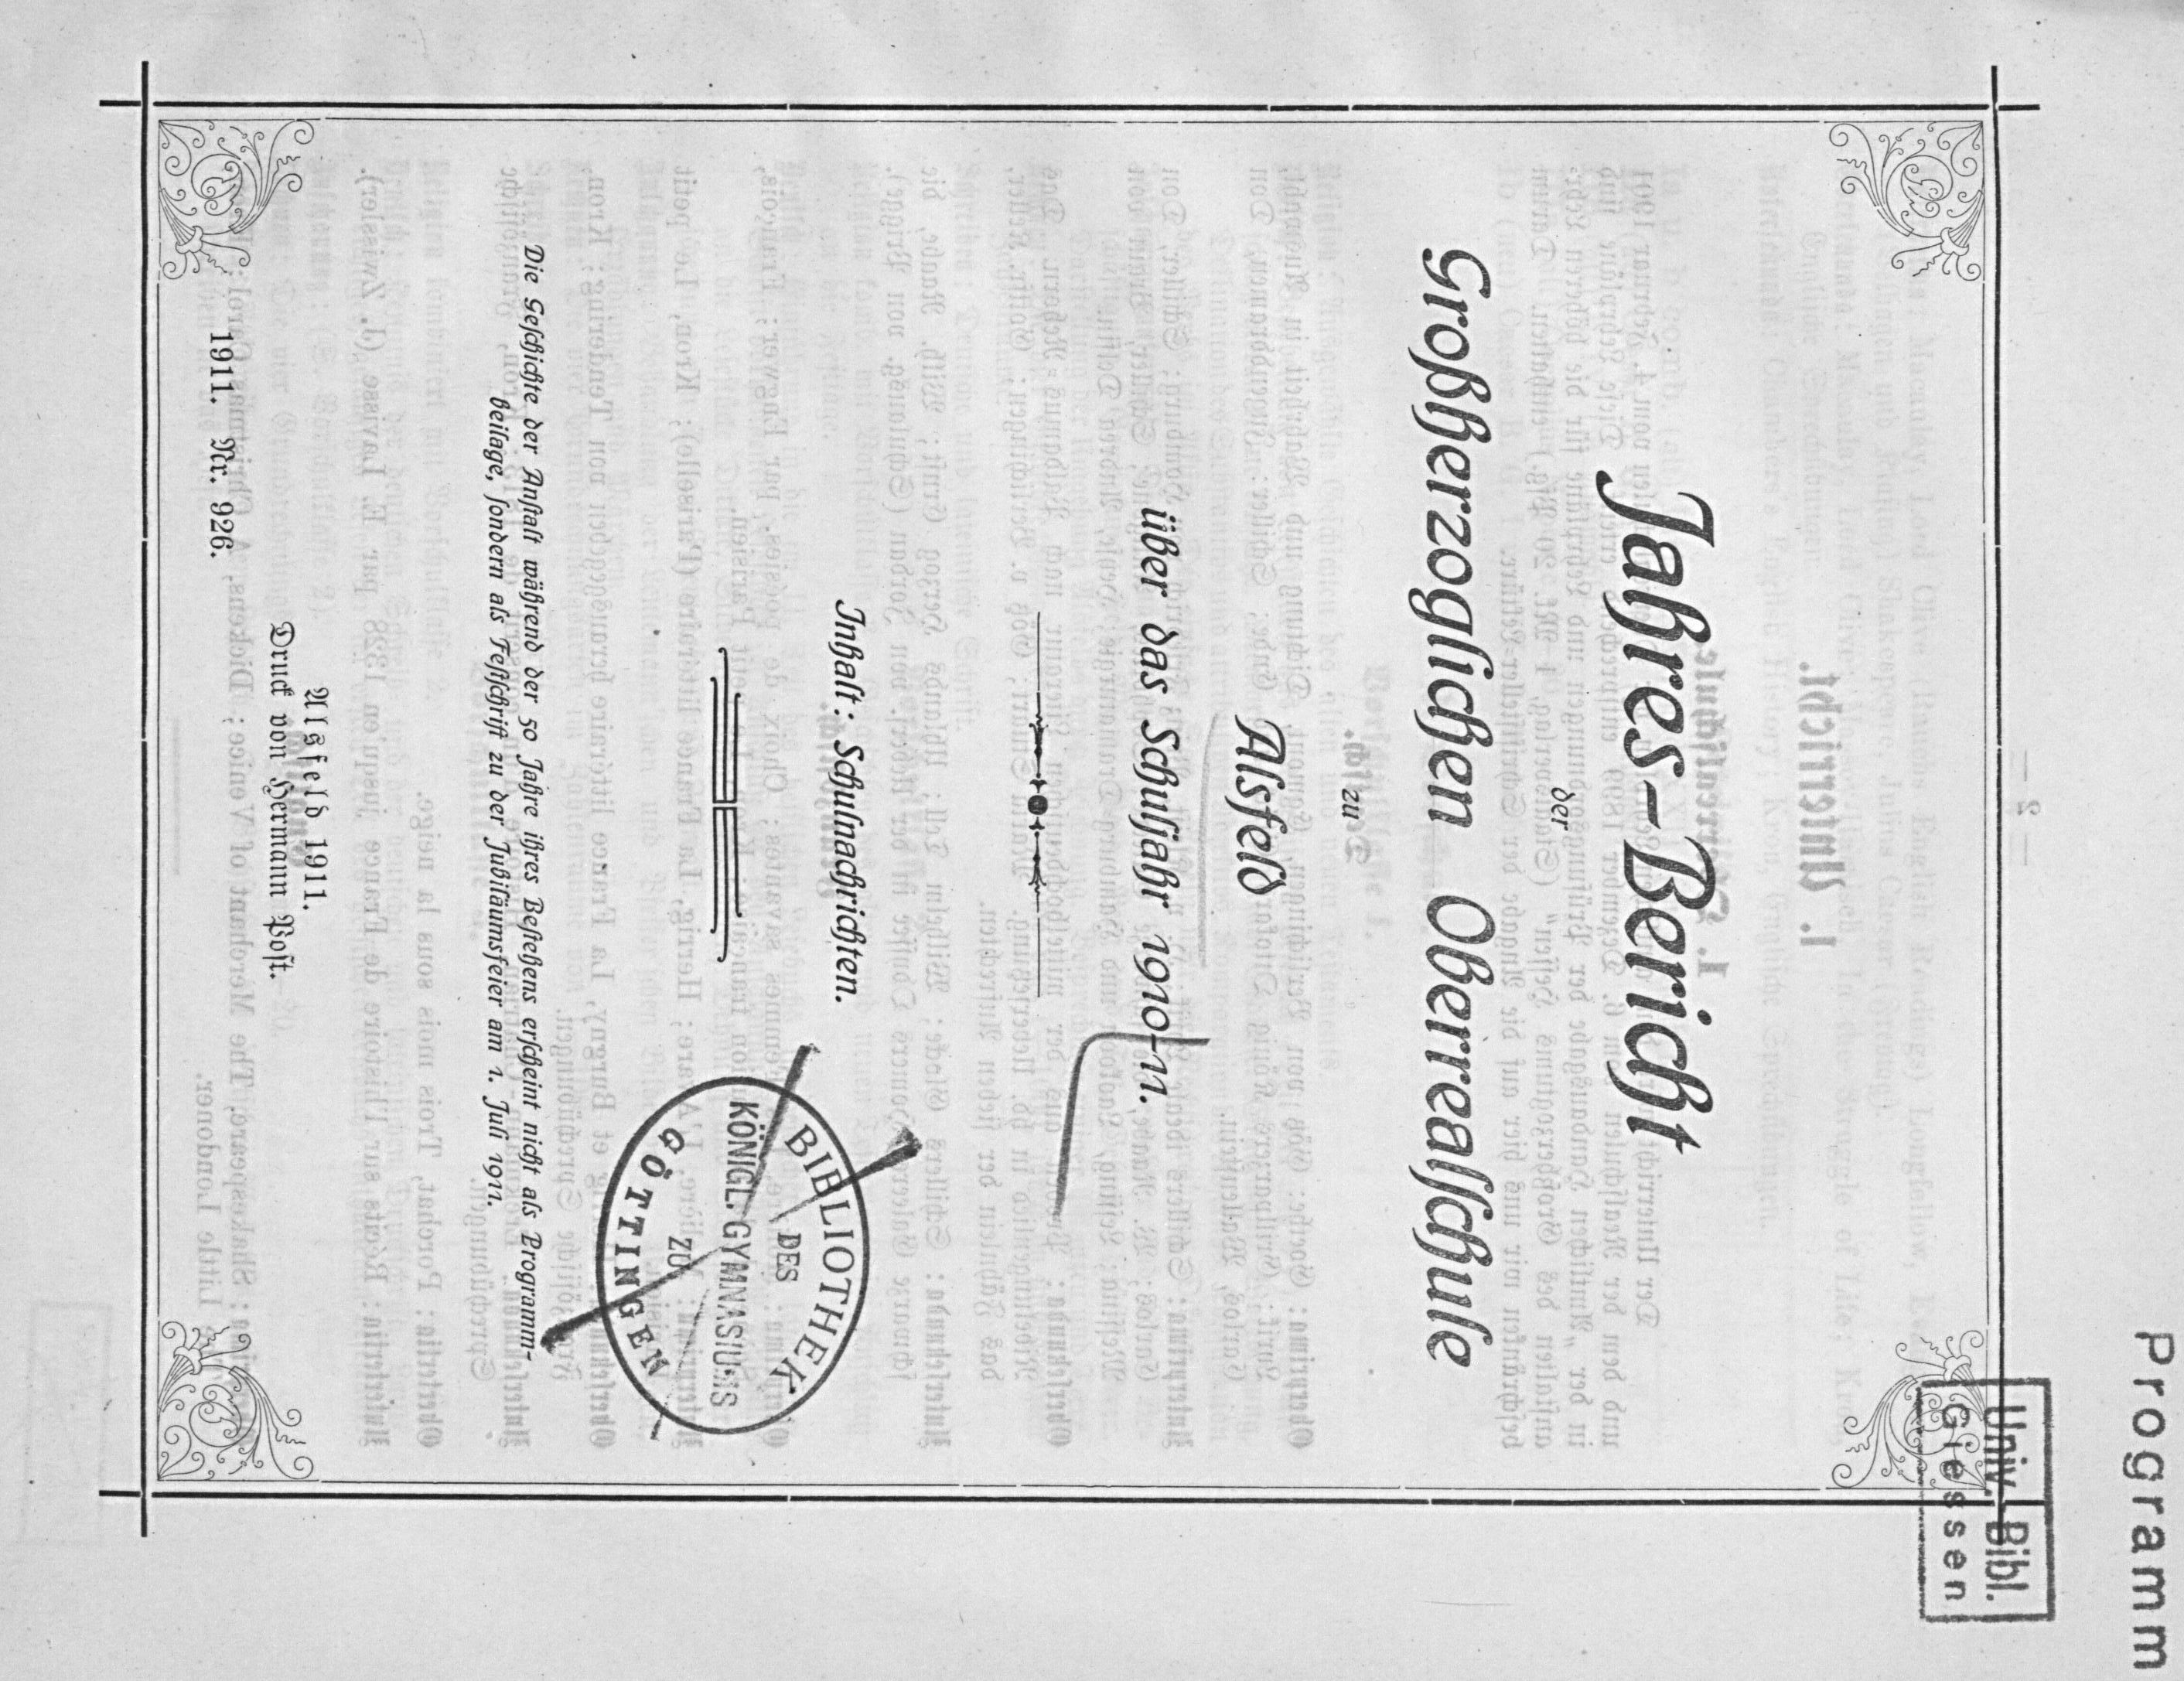 Programm
Univ. Bibl.
Giessen
Jahres-Bericht
der
Großherzoglichen Oberrealschule
zu
Alsfeld
über das Schuljahr 1910-11.
Inhalt: Schulnachrichten.
BIBLIOTHEK
DES
KÖNIGL. GYMNASIUMS
ZU
GÖTTINGEN
Die Geschichte der Anstalt während der 50 Jahre ihres Bestehens erscheint nicht als Programm-
beilage, sondern als Festschrift zu der Jubiläumsfeier am 1. Juli 1911.
Alsfeld 1911.
Druck von Hermann Post.
1911. Nr. 926.